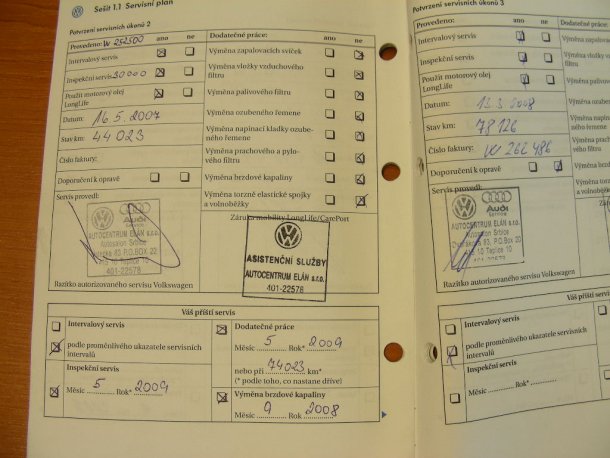 Sešit 1.1 Servisní plán
Potvrzení servisních úkonů 2
Provedeno: W 252500 ano ne
Intervalový servis
Inspekční servis 30000
Použit motorový olej
LongLife
Datum: 16.5.2007
Stav km: 44 023
Číslo faktury:
Doporučení k opravě
Servis provedl:
Audi
Service
AUTOCENTRUM ELÁN s.r.o.
Autosalon Srbice
P.O.BOX 20
10 Teplice 10
401-22578
Razítko autorizovaného servisu Volkswagen
Dodatečné práce: ano ne
Výměna zapalovacích svíček
Výměna vložky vzduchového
filtru
Výměna palivového filtru
Výměna ozubeného řemene
Výměna napínací kladky ozube-
ného řemene
Výměna prachového a pylo-
vého filtru
Výměna brzdové kapaliny
Výměna torzně elastické spojky
a volnoběžky
Záruka mobility LongLife/CarePort
ASISTENČNÍ SLUŽBY
AUTOCENTRUM ELÁN s.r.o.
401-22578
Váš příští servis
Intervalový servis
podle proměnlivého ukazatele servisních
intervalů
Inspekční servis
Měsíc 5 Rok* 2009
Dodatečné práce
Měsíc 5 Rok* 2009
nebo při 74023 km*
(* podle toho, co nastane dříve)
Výměna brzdové kapaliny
Měsíc 9 Rok 2008
Potvrzení servisních úkonů 3
Provedeno: ano ne
Intervalový servis
Inspekční servis
Použit motorový olej
LongLife
Datum: 12.3.2008
Stav km: 78126
Číslo faktury: W 262486
Doporučení k opravě
Servis provedl:
Audi
Service
AUTOCENTRUM ELÁN s.r.o.
Autosalon Srbice
83, P.O.BOX 20
10 Teplice 10
401-22578
Razítko autorizovaného servisu Volkswagen
Dodatečné
Výměna zapal
Výměna vložk
filtru
Výměna paliv
Výměna ozub
Výměna napín
ného řemene
Výměna prach
vého filtru
Výměna brzd
Výměna torzn
a volnoběžky
Záru
Váš příští servis
Intervalový servis
podle proměnlivého ukazatele servisních
intervalů
Inspekční servis
Měsíc Rok*